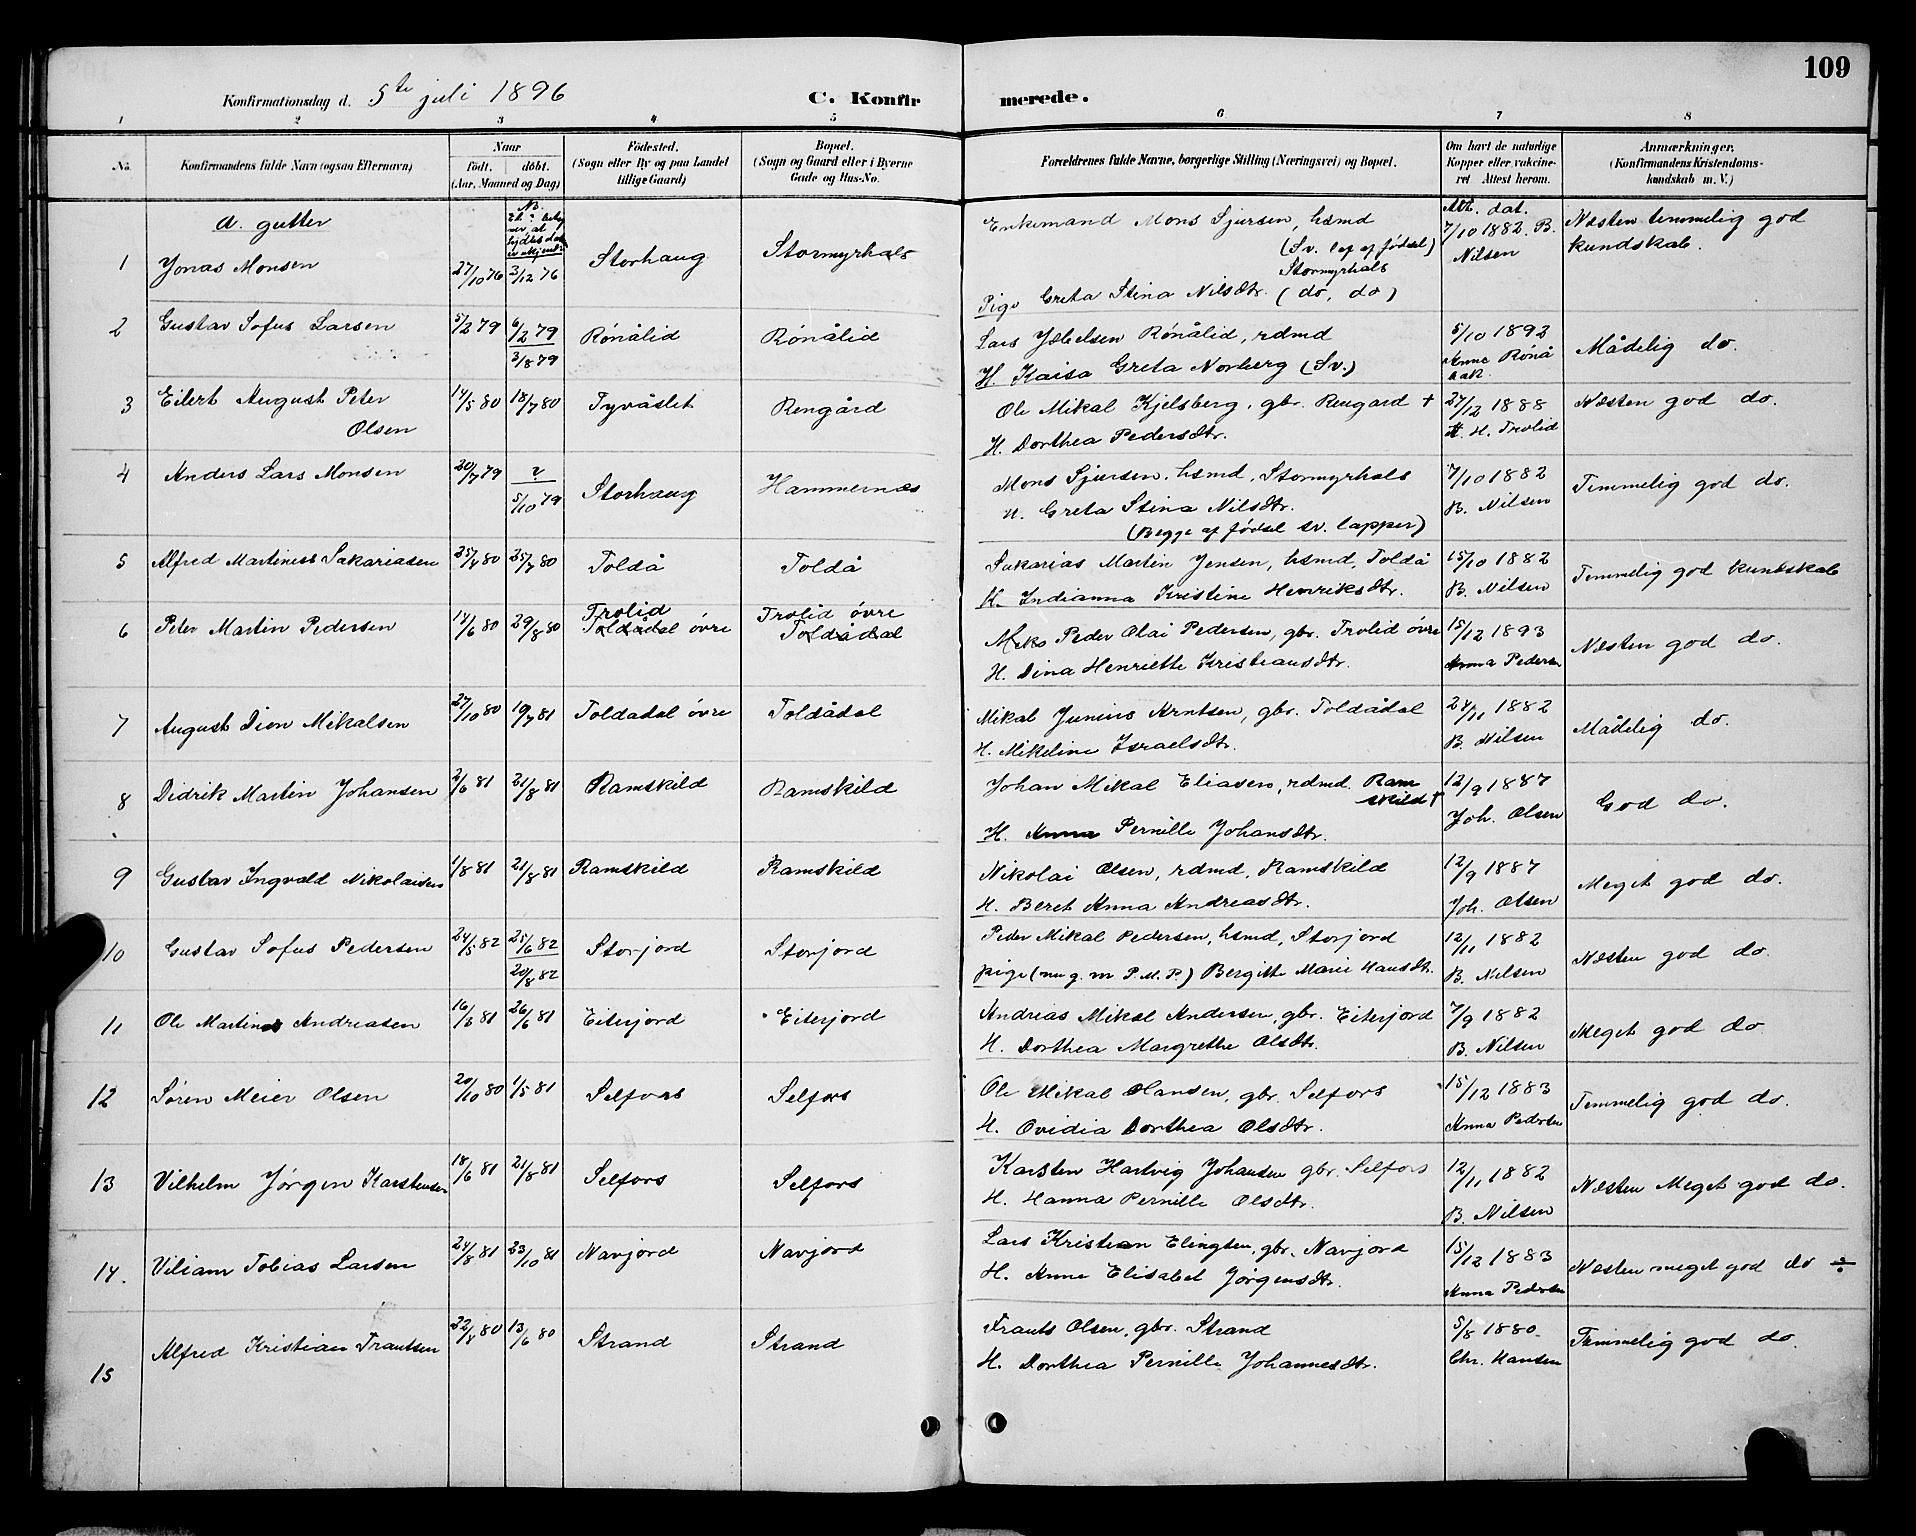 109
Konfirmationsdag d. 5te juli 1896 C. Konfirmerede.
1 2 3 4 5 6 7 8
No. Konfirmandens fulde Navn (ogsaa Efternavn) Naar født. døbt. (Aar, Maaned og Dag) Fødested. (Sogn eller By og paa Landet tillige Gaard) Bopæl. (Sogn og Gaard eller i Byerne Gade og Hus-No. Forældrenes fulde Navne, borgerlige Stilling (Næringsvei) og Bopæl. Om havt de naturlige Kopper eller vakcineret. Attest herom. Anmærkninger. (Konfirmandens Kristendomskundskab m. V.)
a. gutter
1 Jonas Monsen 27/10 76 3/12 76 Storhaug Stormyrhals
Enkemand Mons Sjursen, hsmd
(Sv. lap af fødsel)
Stormyrhals
Pige Greta Stina Nilsdtr. (do, do)
Att. dat. 7/10 1882. B. Nilsen
Næsten temmelig god kundskab.
2 Gustav Sofus Larsen 5/2 79 6/2 79 3/8 79 Rönålid Rönålid
Lars Rönålid, rdmd
H. Kaisa Greta Norberg (Sv.)
5/10 1892 Anna Rönå
Mådelig do.
3 Eilert August Peter Olsen 14/5 80 18/7 80 Tyvåslet Rengård
Ole Mikal Kjelsberg, gbr. Rengard †
H. Dorthea Pedersdtr.
27/12 1888 H. Trolid
Næsten god do.
4 Anders Lars Monsen 20/7 79 ? 5/10 79 Storhaug Hammernæs
Mons Sjursen, hsmd, Stormyrhals
H. Greta Stina Nilsdtr.
(Begge af fødsel sv. lapper)
7/10 1882 B. Nilsen
Temmelig god do.
5 Alfred Martines Sakariasen 25/4 80 25/7 80 Toldå Toldå
Sakarias Martin Jensen, hsmd, Toldå
K. Indianna Kristine Henriksdtr.
15/10 1882 B. Nilsen
Temmelig god kundskab
6 Peter Martin Pedersen 14/6 80 29/8 80 Trolid Toldådal övre Trolid övre Toldådal
Peder Olai Pedersen, gbr. Trolid övre
H. Dina Henriette Kristiansdtr.
15/12 1893 Anna Pedersen
Næsten god do.
7 August Dion Mikalsen 27/10 80 19/7 81 Toldadal övre Toldådal
Mikal Junius Arntsen, gbr. Toldådal
H. Mikeline Israelsdtr.
24/11 1882 B. Nilsen
Mådelig do.
8 Didrik Martin Johansen 2/6 81 21/8 81 Ramskild Ramskild
Johan Mikal Eliasen, rdmd. Ramskild †
H. Anna Pernille Johansdtr.
12/9 1887 Joh. Olsen
God do.
9 Gustav Ingvald Nikolaisen 1/8 81 21/8 81 Ramskild Ramskild
Nikolai Olsen, rdmd, Ramskild
H. Beret Anna Andreasdtr.
12/9 1887 Joh. Olsen
Meget god do.
10 Gustav Sofus Pedersen 24/5 82 25/6 82 20/8 82 Storjord Storjord
Peder Mikal Pedersen, hsmd, Storjord
pige (nu g. m P. M. P.) Bergitte Marie Hansdtr.
12/11 1882 B. Nilsen
Næsten god do.
11 Ole Martin Andreasen 16/3 81 26/6 81 Eiterjord Eiterjord
Andreas Mikal Andersen, gbr. Eiterjord
H. Dorthea Margrethe Olsdtr.
7/9 1882 B. Nilsen
Meget god do
12 Søren Meier Olsen 20/10 80 1/5 81 Selfors Selfors
Ole Mikal Hansen, gbr. Selfors
H. Ovidia Dorthea Olsdtr.
15/12 1883 Anna Pedersen
Temmelig god do.
13 Vilhelm Jørgen Karstensen 18/6 81 21/8 81 Selfors Selfors
Karsten Hartvig Johansen gbr. Selfors
H. Hanna Pernille Olsdtr.
12/11 1882 B. Nilsen
Næsten Meget god do.
14. Viliam Tobias Larsen 24/8 81 23/10 81 Navjord Navjord
Lars Kristian Elingsen, gbr. Navjord
H. Anne Elisabet Jørgensdtr.
15/12 1883 Anna Pedersen
Næsten meget god do ÷
15 Alfred Kristian Frantsen 22/4 80 13/6 80 Strand Strand
Frants Olsen, gbr. Strand
H. Dorthea Pernille Johannesdtr.
5/8 1880. Chr. Hansen
Temmelig god do.